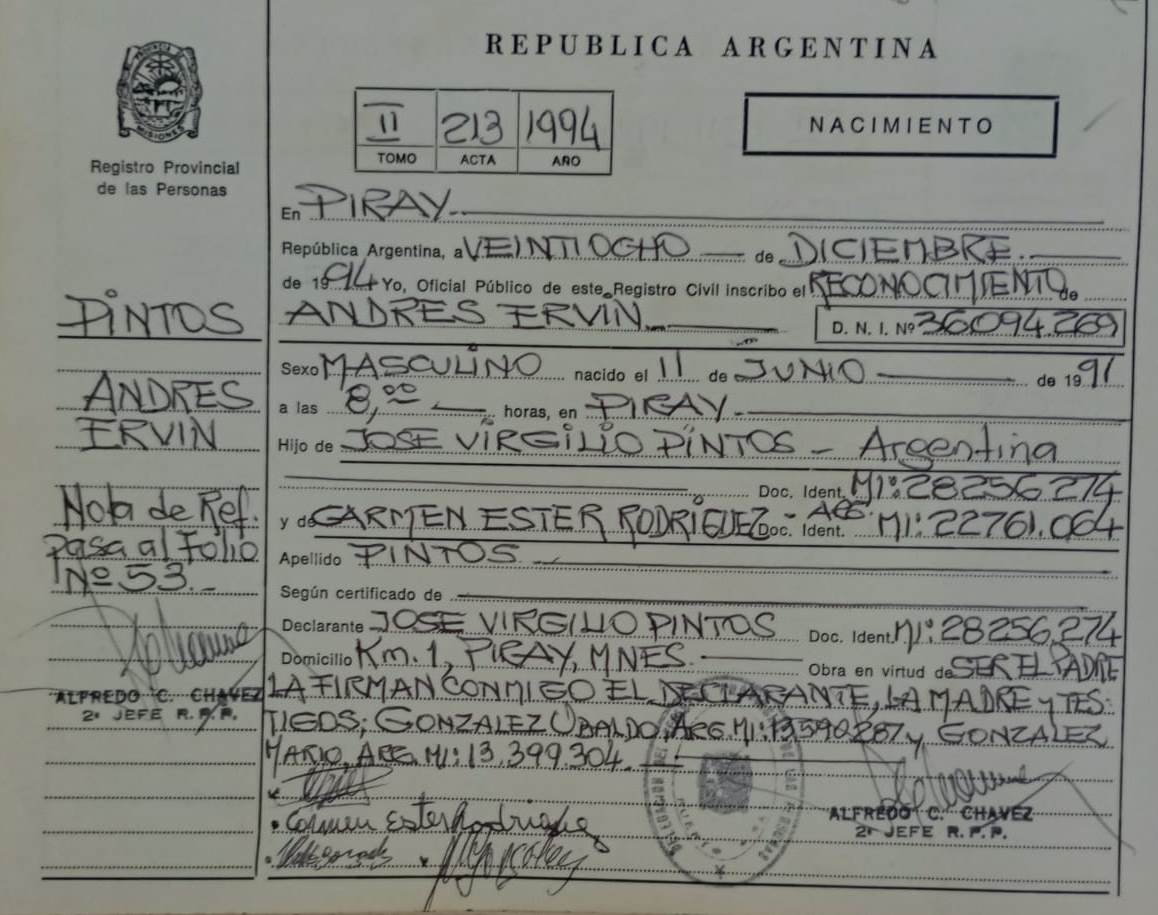 REPUBLICA ARGENTINA
MISIONES
Registro Provincial
de las Personas
II 213 1994
TOMO ACTA AÑO
NACIMIENTO
En PIRAY
República Argentina, a VEINTIOCHO de DICIEMBRE
de 1994 Yo, Oficial Público de este Registro Civil inscribo el RECONOCIMIENTO de
ANDRES ERVIN D. N. I. Nº 36094.269
Sexo MASCULINO nacido el 11 de JUNIO de 1991
a las 8,00 horas, en PIRAY.
Hijo de JOSE VIRGILIO PINTOS - Argentina
Doc. Ident. MI: 28256.274
y de CARMEN ESTER RODRIGUEZ - ARG. Doc. Ident. MI: 22761.064
Apellido PINTOS
Según certificado de
Declarante JOSE VIRGILIO PINTOS Doc. Ident. MI: 28256.274
Domicilio Km. 1, PIRAY, MNES. Obra en virtud de SER EL PADRE
LA FIRMAN CONMIGO EL DECLARANTE, LA MADRE y TES-
TIGOS; GONZALEZ UBALDO, ARG. MI: 13.590.287 y GONZALEZ
MARIO, ARG. MI: 13.399.304.
Carmen Ester Rodriguez
ALFREDO C. CHAVEZ
2º JEFE R.P.P.
PINTOS
ANDRES
ERVIN
Nota de Ref.
pasa al Folio
Nº 53.-
ALFREDO C. CHAVEZ
2º JEFE R.P.P.